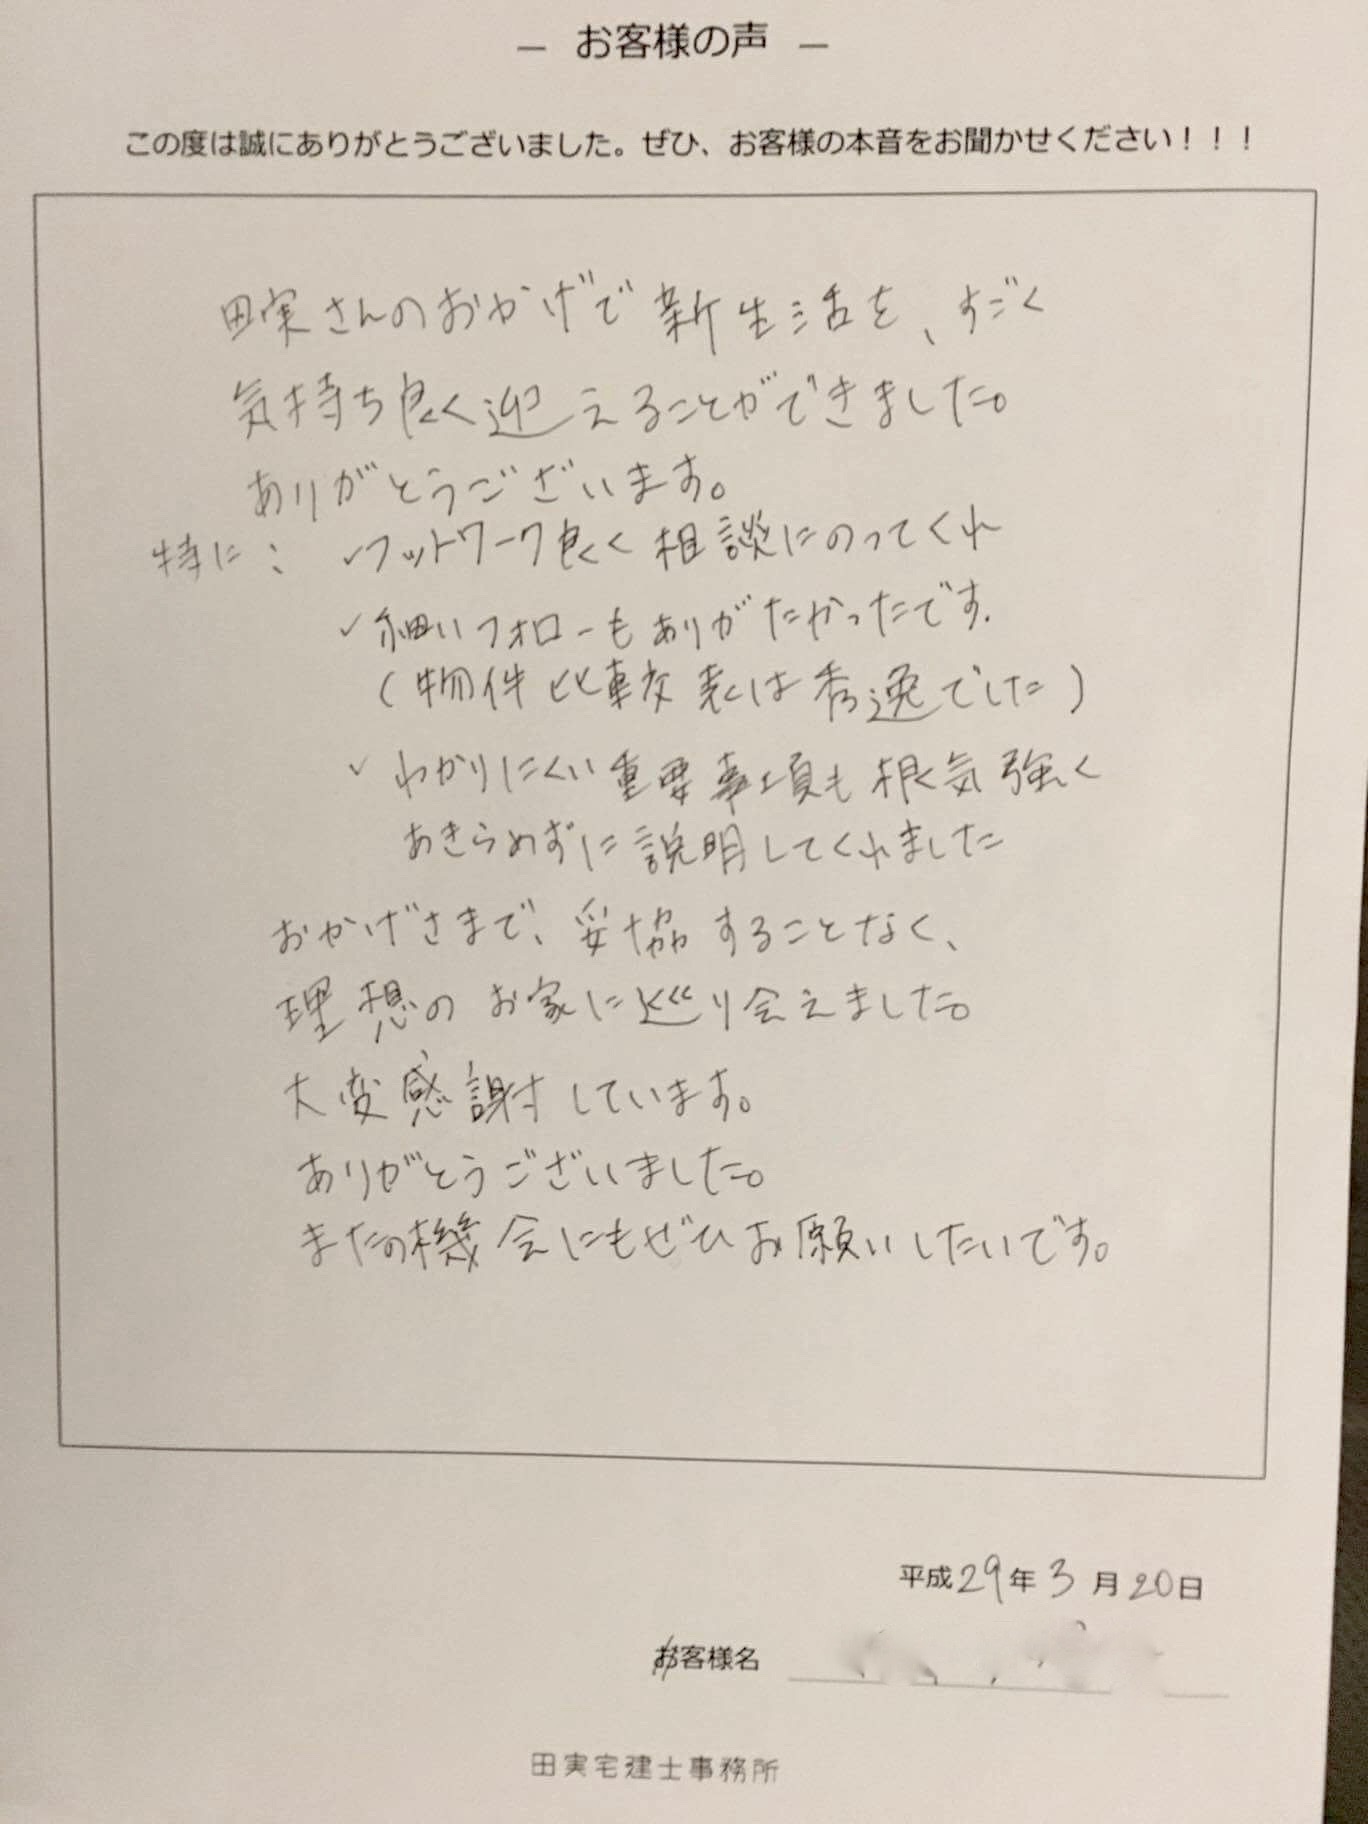 ― お客様の声 ―
この度は誠にありがとうございました。ぜひ、お客様の本音をお聞かせください！！！
田実さんのおかげで新生活を、すごく
気持ち良く迎えることができました。
ありがとうございます。
特に： ✓フットワーク良く相談にのってくれ
✓細いフォローもありがたかったです.
（物件比較表は秀逸でした）
✓わかりにくい重要事項も根気強く
あきらめずに説明してくれました
おかげさまで、妥協することなく、
理想のお家に巡り会えました。
大変感謝しています。
ありがとうございました。
またの機会にもぜひお願いしたいです。
平成29年3月20日
お客様名
田実宅建士事務所